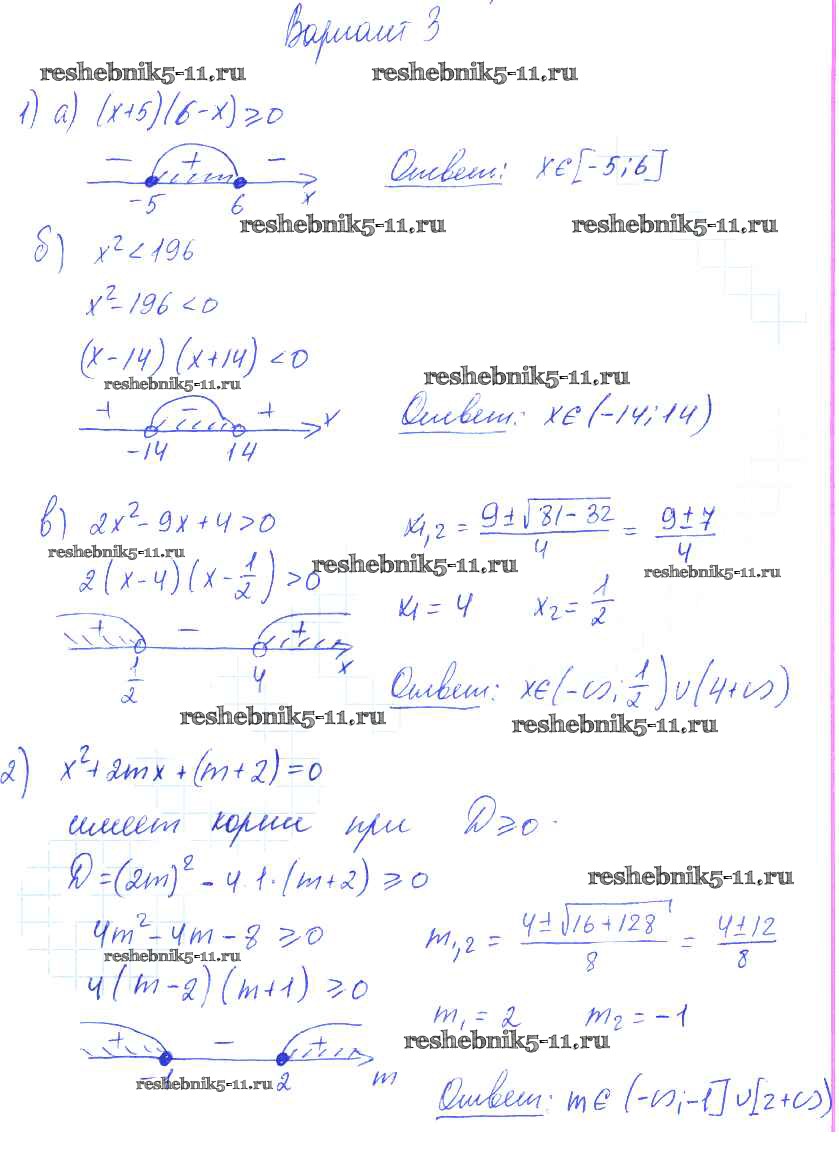 Вариант 3
reshebnik5-11.ru reshebnik5-11.ru
1) а) (x+5)(6-x)≥0
- + -
-5 6 x
Ответ: x∈[-5;6]
reshebnik5-11.ru reshebnik5-11.ru
б) x²<196
x²-196<0
(x-14)(x+14)<0
reshebnik5-11.ru reshebnik5-11.ru
+ - + x
-14 14
Ответ: x∈(-14;14)
в) 2x²-9x+4>0 x₁,₂ = (9±√(81-32))/4 = (9±7)/4
reshebnik5-11.ru reshebnik5-11.ru reshebnik5-11.ru
2(x-4)(x-1/2)>0 x₁=4 x₂=1/2
+ - +
1/2 4 x
Ответ: x∈(-∞;1/2)∪(4+∞)
reshebnik5-11.ru reshebnik5-11.ru
2) x²+2mx+(m+2)=0
имеет корни при D≥0.
D=(2m)²-4·1·(m+2)≥0
reshebnik5-11.ru
4m²-4m-8≥0 m₁,₂ = (4±√(16+128))/8 = (4±12)/8
reshebnik5-11.ru
4(m-2)(m+1)≥0
m₁=2 m₂=-1
+ - +
reshebnik5-11.ru
-1 2 m
reshebnik5-11.ru
Ответ: m∈(-∞;-1]∪[2+∞)